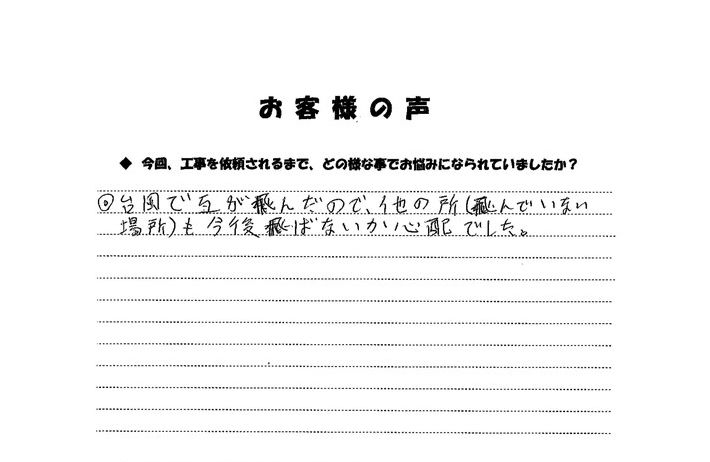 お客様の声
◆ 今回、工事を依頼されるまで、どの様な事でお悩みになられていましたか？
◎台風で瓦が飛んだので、他の所(飛んでいない
場所)も今後飛ばないか心配でした。